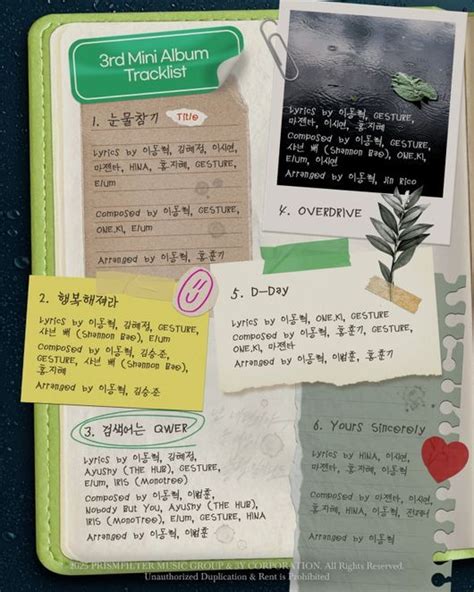 3rd Mini Album
Tracklist
1. 눈물참기 Title
Lyrics by 이동혁, 김혜정, 이시연,
마젠타, HINA, 홍지혜, GESTURE,
Elum
Composed by 이동혁, GESTURE,
ONE,KI, Elum
Arranged by 이동혁, 홍훈기
2. 행복해져라
Lyrics by 이동혁, 김혜정, GESTURE,
샤넌 배 (Shannon Bae), Elum
Composed by 이동혁, 김승준,
GESTURE, 샤넌 배 (Shannon Bae),
홍지혜
Arranged by 이동혁, 김승준
3. 검색어는 QWER
Lyrics by 이동혁, 김혜정,
Ayushy (THE HUB), GESTURE,
Elum, IRIS (MonoTree)
Composed by 이동혁, 이범훈,
Nobody But You, Ayushy (THE HUB),
IRIS (MonoTree), Elum, GESTURE, HINA
Arranged by 이동혁, 이범훈
Lyrics by 이동혁, GESTURE,
마젠타, 이시연, 홍지혜
Composed by 이동혁, GESTURE,
샤넌 배 (Shannon Bae), ONE,KI,
Elum, 이시연
Arranged by 이동혁, Jin Rico
4. OVERDRIVE
5. D-Day
Lyrics by 이동혁, ONE,KI, GESTURE
Composed by 이동혁, 홍훈기, GESTURE,
ONE,KI, 마젠타
Arranged by 이동혁, 이범훈, 홍훈기
6. Yours Sincerely
Lyrics by HINA, 이시연,
마젠타, 홍지혜, 이동혁
Composed by 마젠타, 이시연,
홍지혜, HINA, 이동혁,
Arranged by 이동혁
2025 PRISMFILTER MUSIC GROUP & 3Y CORPORATION. All Rights Reserved.
Unauthorized Duplication & Rent is Prohibited